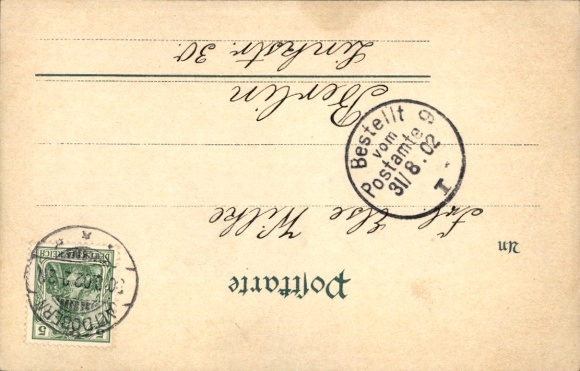 Postkarte
An
Frl. Else Wilke
Berlin
Linkstr. 30.
Bestellt
vom
Postamte 9
31/8.02
I -
5
DEUTSCHES REICH
5